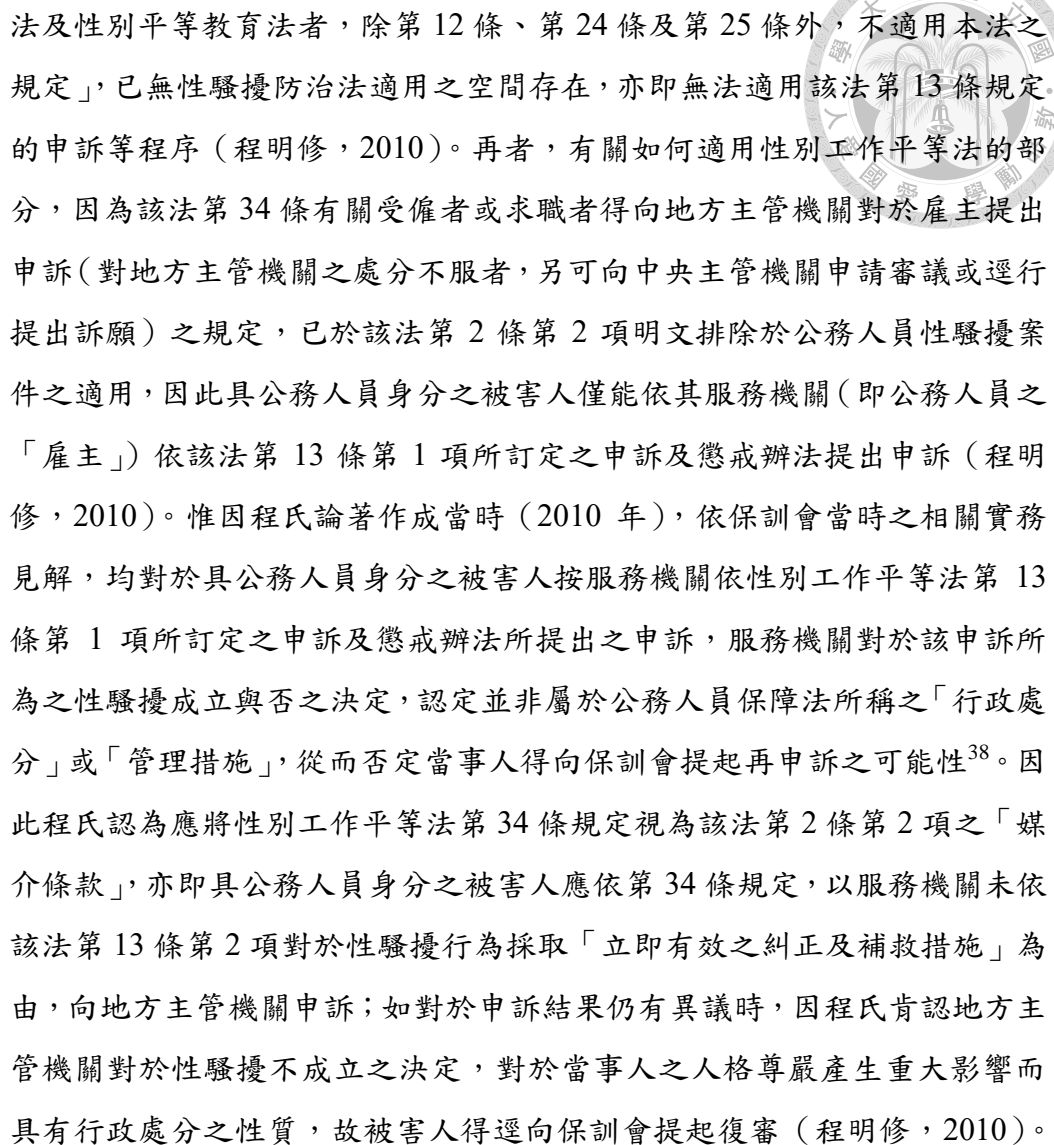 法及性別平等教育法者，除第 12 條、第 24 條及第 25 條外，不適用本法之
規定」，已無性騷擾防治法適用之空間存在，亦即無法適用該法第 13 條規定
的申訴等程序（程明修，2010）。再者，有關如何適用性別工作平等法的部
分，因為該法第 34 條有關受僱者或求職者得向地方主管機關對於雇主提出
申訴（對地方主管機關之處分不服者，另可向中央主管機關申請審議或逕行
提出訴願）之規定，已於該法第 2 條第 2 項明文排除於公務人員性騷擾案
件之適用，因此具公務人員身分之被害人僅能依其服務機關（即公務人員之
「雇主」）依該法第 13 條第 1 項所訂定之申訴及懲戒辦法提出申訴（程明
修，2010）。惟因程氏論著作成當時（2010 年），依保訓會當時之相關實務
見解，均對於具公務人員身分之被害人按服務機關依性別工作平等法第 13
條第 1 項所訂定之申訴及懲戒辦法所提出之申訴，服務機關對於該申訴所
為之性騷擾成立與否之決定，認定並非屬於公務人員保障法所稱之「行政處
分」或「管理措施」，從而否定當事人得向保訓會提起再申訴之可能性38。因
此程氏認為應將性別工作平等法第 34 條規定視為該法第 2 條第 2 項之「媒
介條款」，亦即具公務人員身分之被害人應依第 34 條規定，以服務機關未依
該法第 13 條第 2 項對於性騷擾行為採取「立即有效之糾正及補救措施」為
由，向地方主管機關申訴；如對於申訴結果仍有異議時，因程氏肯認地方主
管機關對於性騷擾不成立之決定，對於當事人之人格尊嚴產生重大影響而
具有行政處分之性質，故被害人得逕向保訓會提起復審（程明修，2010）。